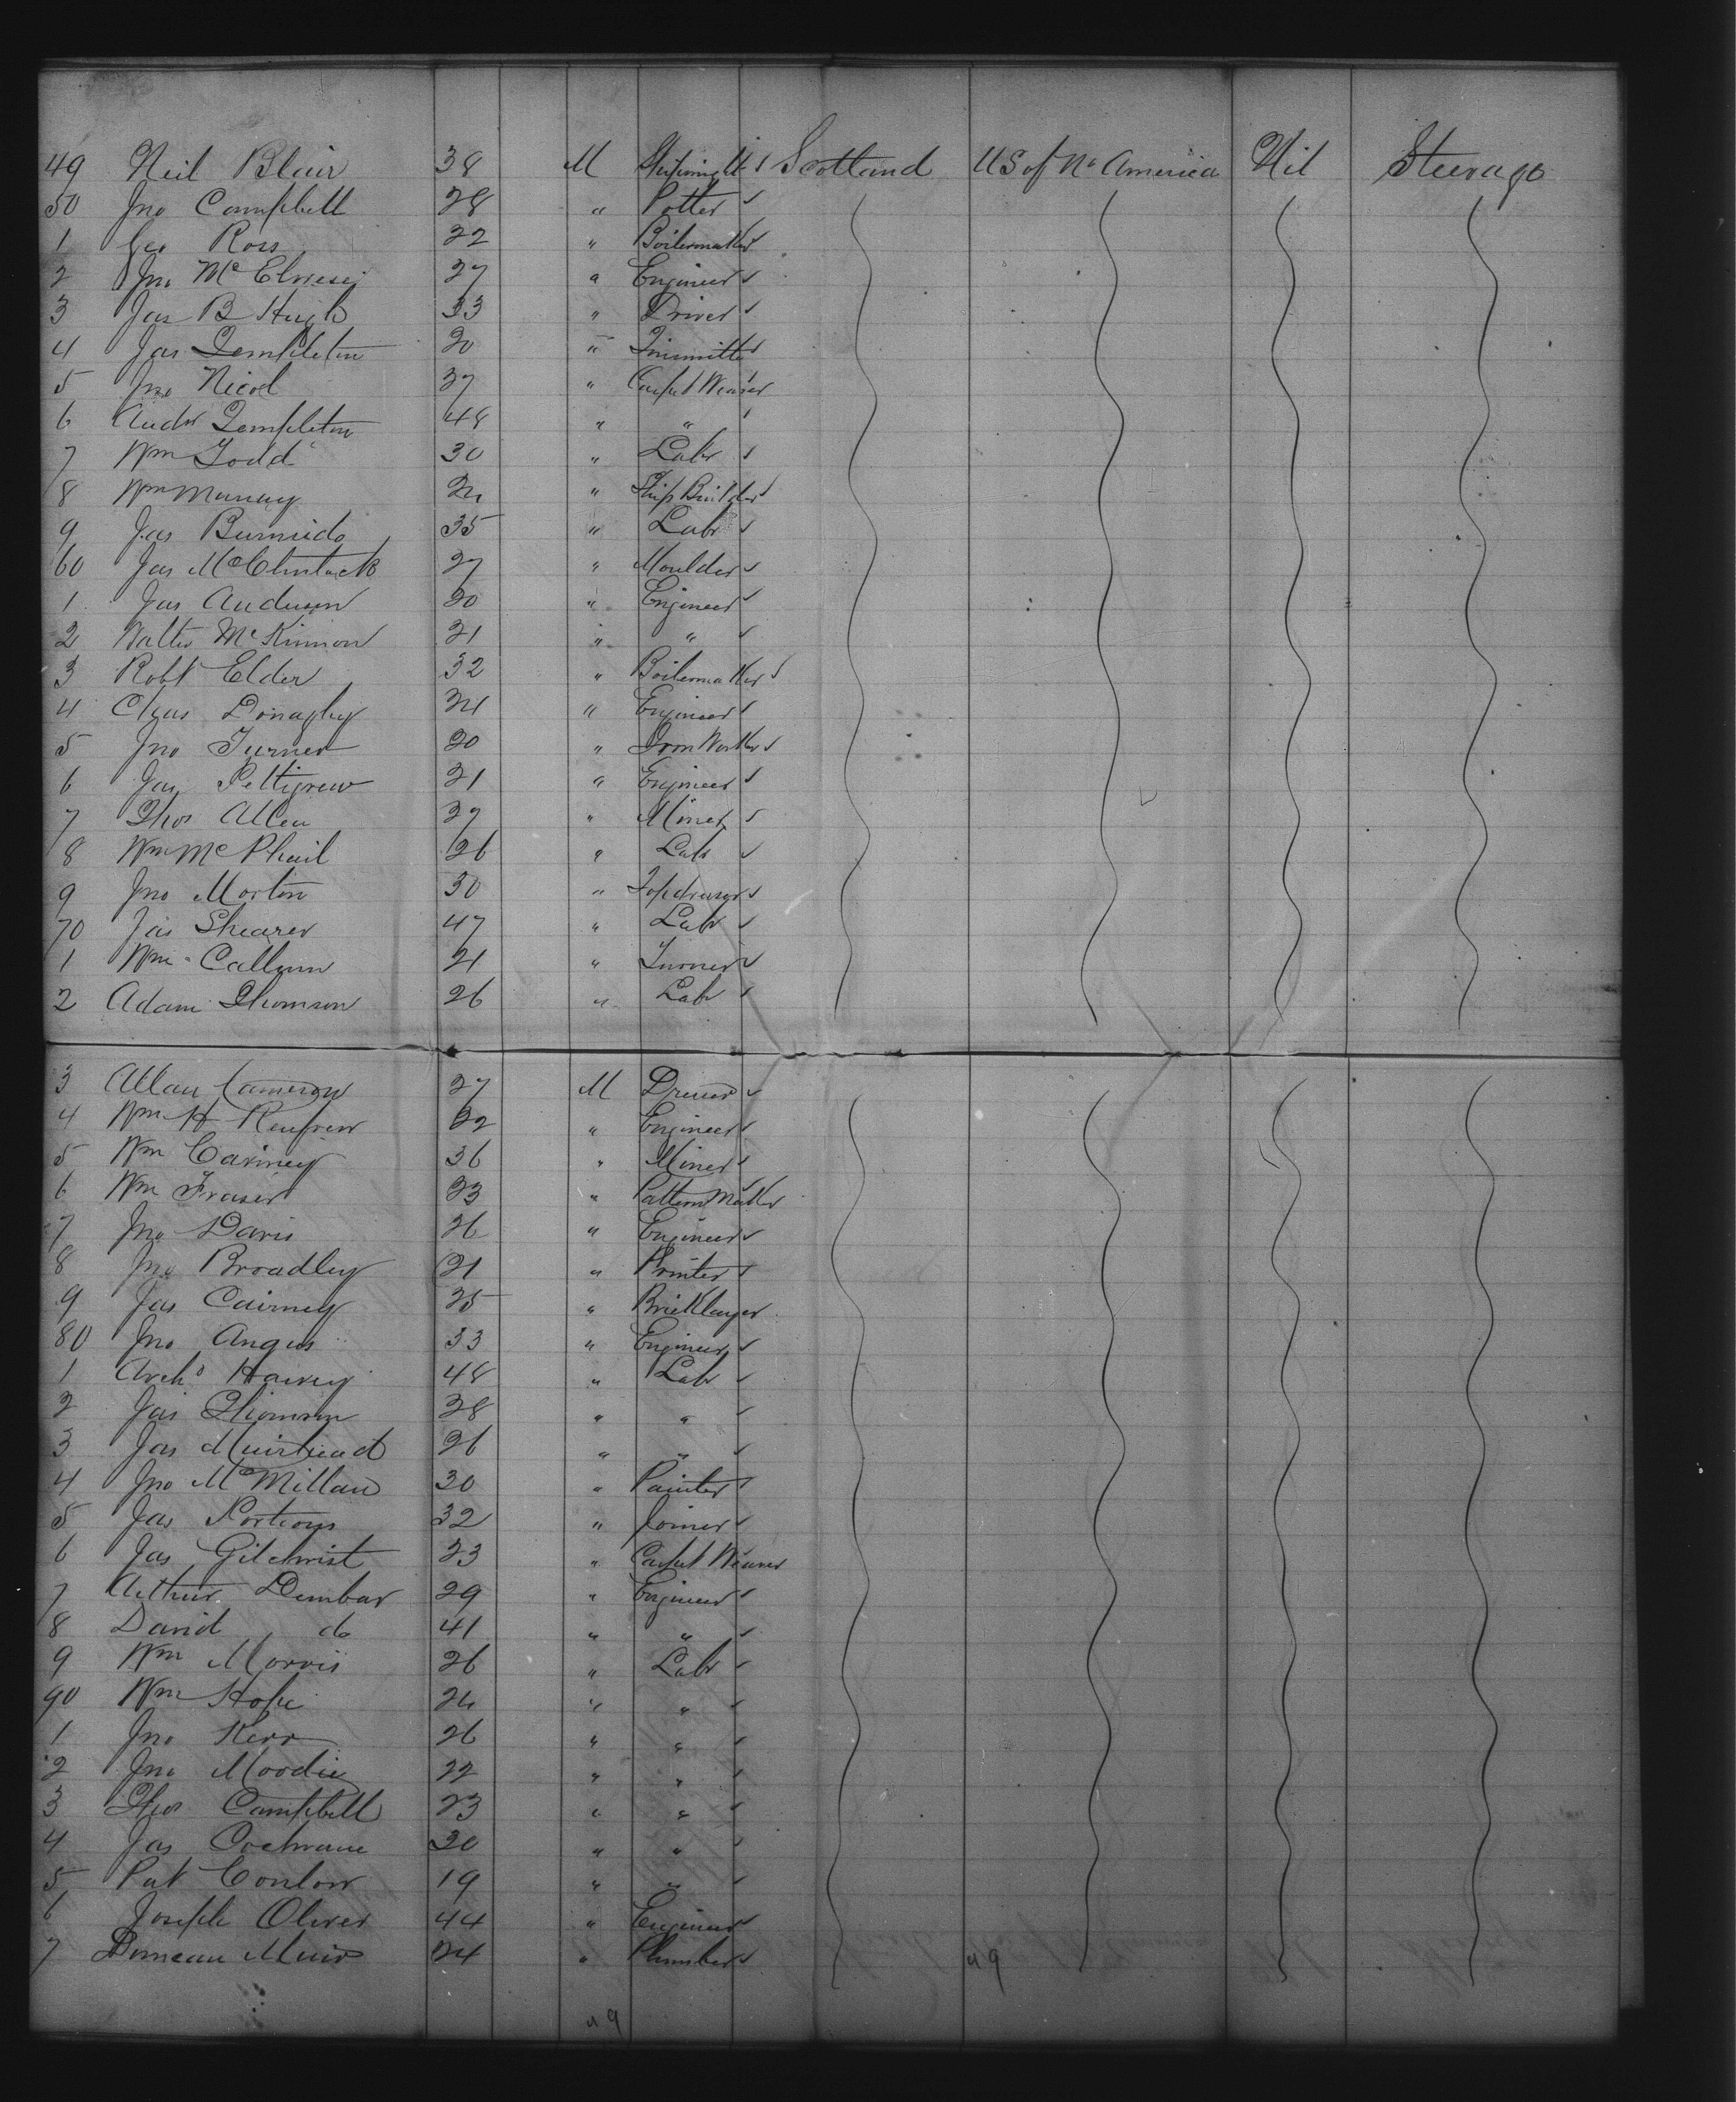 49 Neil Blair 38 M Shipwright Scotland US of No America Nil Steerage
50 Jno Campbell 28 " Potter
1 Geo Ross 22 " Boilermaker
2 Jno 27 " Engineer
3 Jas B Hugh 33 " Driver
4 Jas Templeton 20 " Tinsmith
5 Jno Nicol 37 " Carpet Weaver
6 Andw Templeton 48 " "
7 Wm Todd 30 " Labr
8 Wm Murray " Ship Builder
9 Jas Burnside 35 " Labr
60 Jas McClintock 27 " Moulder
1 Jas Anderson 20 " Engineer
2 Walter McKinnon 21 " "
3 Robt Elder 32 " Boilermaker
4 Chas Donaghy 24 " Engineer
5 Jno Turner 20 " Iron Worker
6 Jas Pettigrew 21 " Engineer
7 Thos Allen 37 " Miner
8 Wm McPhail 26 " Labr
9 Jno Morton 30 "
70 Jas Shearer 47 " Labr
1 Wm Callum 21 " Turner
2 Adam Thomson 26 " Labr
3 Allan Cameron 27 M
4 Wm H Renfrew 22 " Engineer
5 Wm Cairney 36 " Miner
6 Wm Fraser 23 " Pattern Maker
7 Jno Davis 26 " Engineer
8 Jno Broadley 21 " Printer
9 Jas Cairney 25 " Bricklayer
80 Jno Angus 33 " Engineer
1 Archd Harvey 48 " Labr
2 Jas Thomson 28 " "
3 Jas Muirhead 26 " "
4 Jno McMillan 30 " Painter
5 Jas Porteous 32 " Joiner
6 Jas Gilchrist 23 " Carpet Weaver
7 Arthur Dunbar 29 " Engineer
8 David do 41 " "
9 Wm Morris 26 " Labr
90 Wm Hope 24 " "
1 Jno Kerr 26 " "
2 Jno Moodie 22 " "
3 Thos Campbell 23 " "
4 Jas Cochrane 30 " "
5 Pat Conlon 19 " "
6 Joseph Oliver 44 " Engineer
7 Duncan Muir 24 " Plumber 49
49